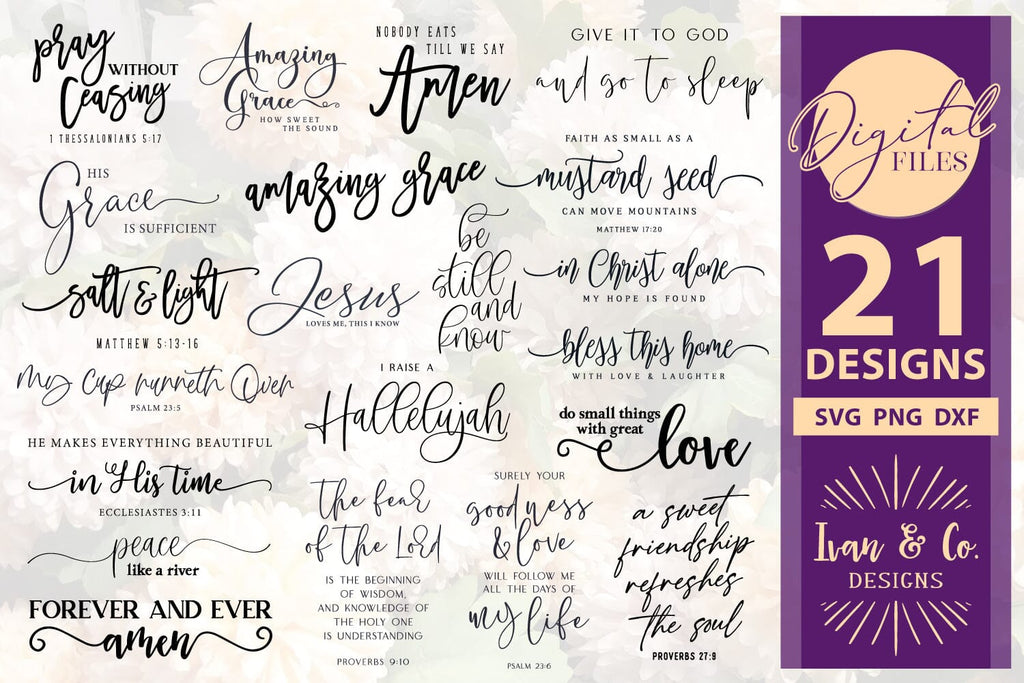 pray
WITHOUT
Ceasing
1 THESSALONIANS 5:17
Amazing
Grace
HOW SWEET
THE SOUND
NOBODY EATS
TILL WE SAY
Amen
GIVE IT TO GOD
and go to sleep
HIS
Grace
IS SUFFICIENT
amazing grace
FAITH AS SMALL AS A
mustard seed
CAN MOVE MOUNTAINS
MATTHEW 17:20
salt & light
MATTHEW 5:13-16
Jesus
LOVES ME, THIS I KNOW
be
still
and
know
in Christ alone
MY HOPE IS FOUND
bless this home
WITH LOVE & LAUGHTER
my cup runneth Over
PSALM 23:5
I RAISE A
Hallelujah
do small things
with great
love
HE MAKES EVERYTHING BEAUTIFUL
in His time
ECCLESIASTES 3:11
peace
like a river
FOREVER AND EVER
amen
the fear
of the Lord
IS THE BEGINNING
OF WISDOM,
AND KNOWLEDGE OF
THE HOLY ONE
IS UNDERSTANDING
PROVERBS 9:10
SURELY YOUR
goodness
& love
WILL FOLLOW ME
ALL THE DAYS OF
my life
PSALM 23:6
a sweet
friendship
refreshes
the soul
PROVERBS 27:9
Digital
FILES
21
DESIGNS
SVG PNG DXF
Ivan & Co.
DESIGNS